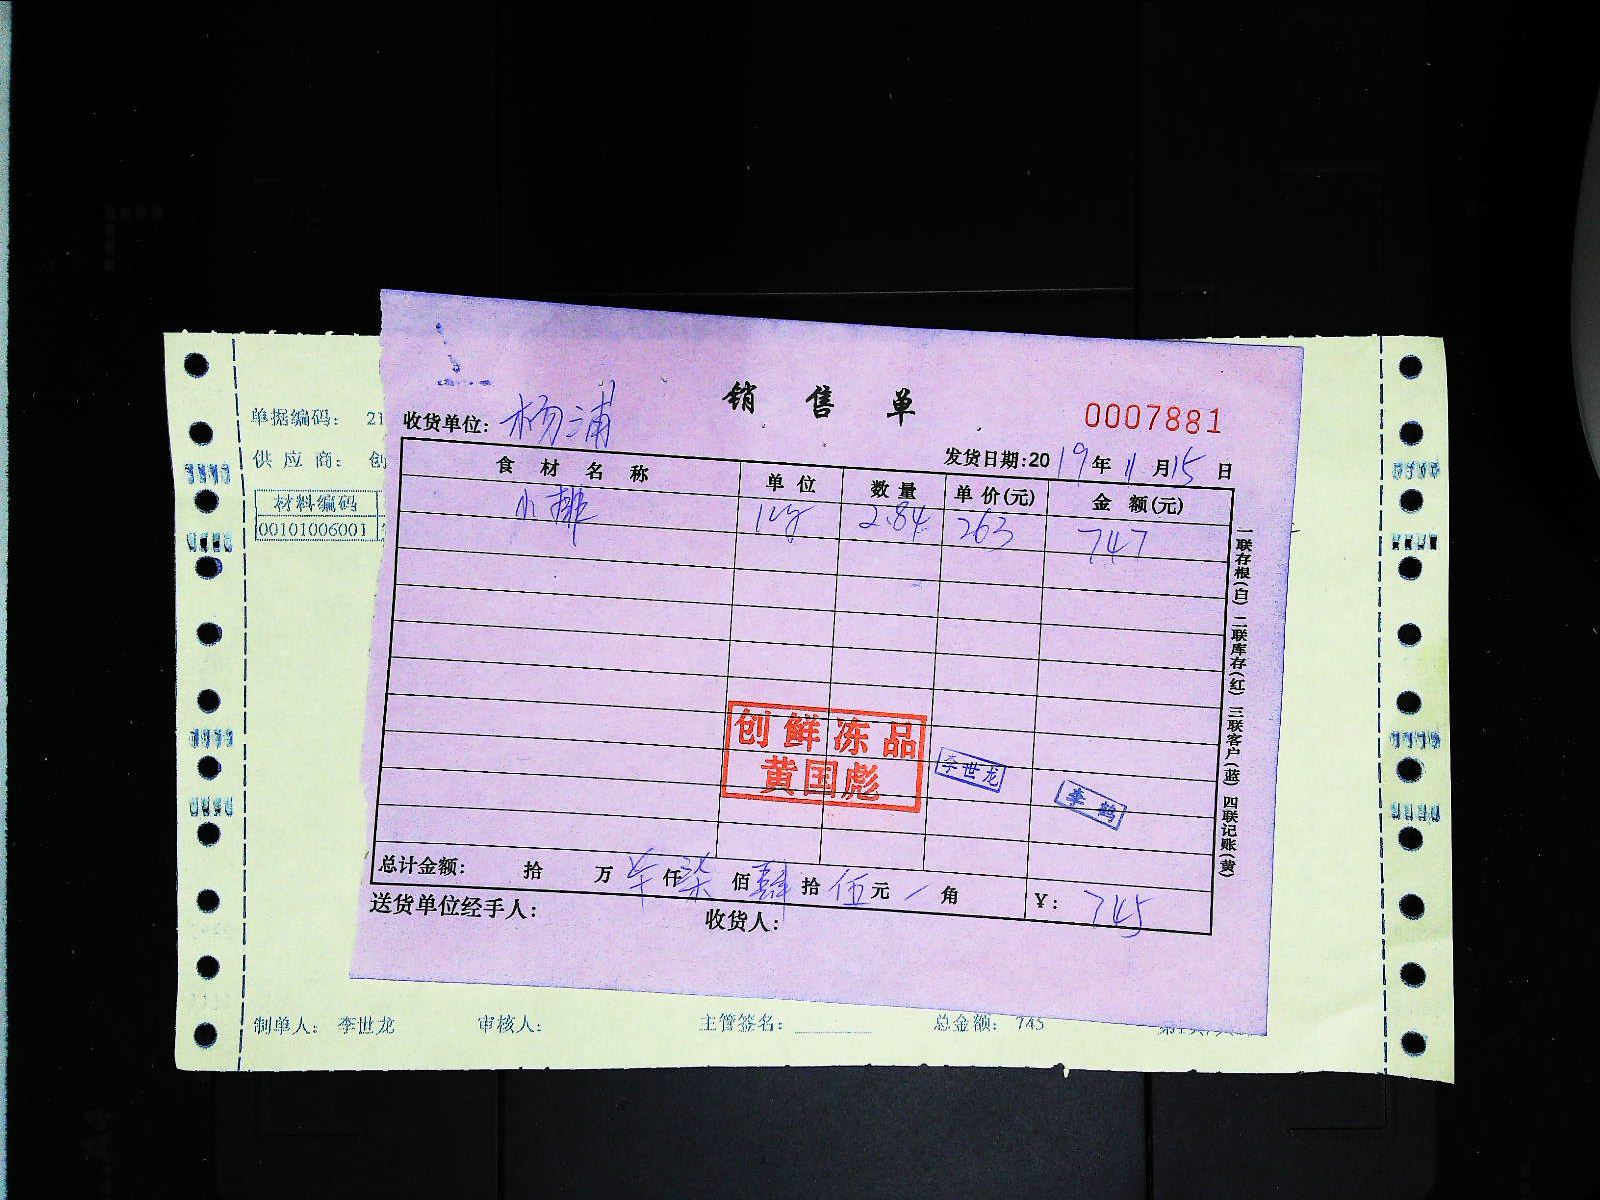 销售单
0007881
收货单位: 杨浦
发货日期:2019年11月15日
食材名称 单位 数量 单价(元) 金额(元)
小排 kg 2.84 263 747
一联存根(白) 二联库存(红) 三联客户(蓝) 四联记账(黄)
创鲜冻品
黄国彪
李世龙
李鹤
总计金额: 拾 万 仟柒佰肆拾伍元 角 ¥: 745
送货单位经手人: 收货人:
单据编码: 21
供应商: 创
材料编码
00101006001
制单人: 李世龙 审核人: 主管签名: 总金额: 745